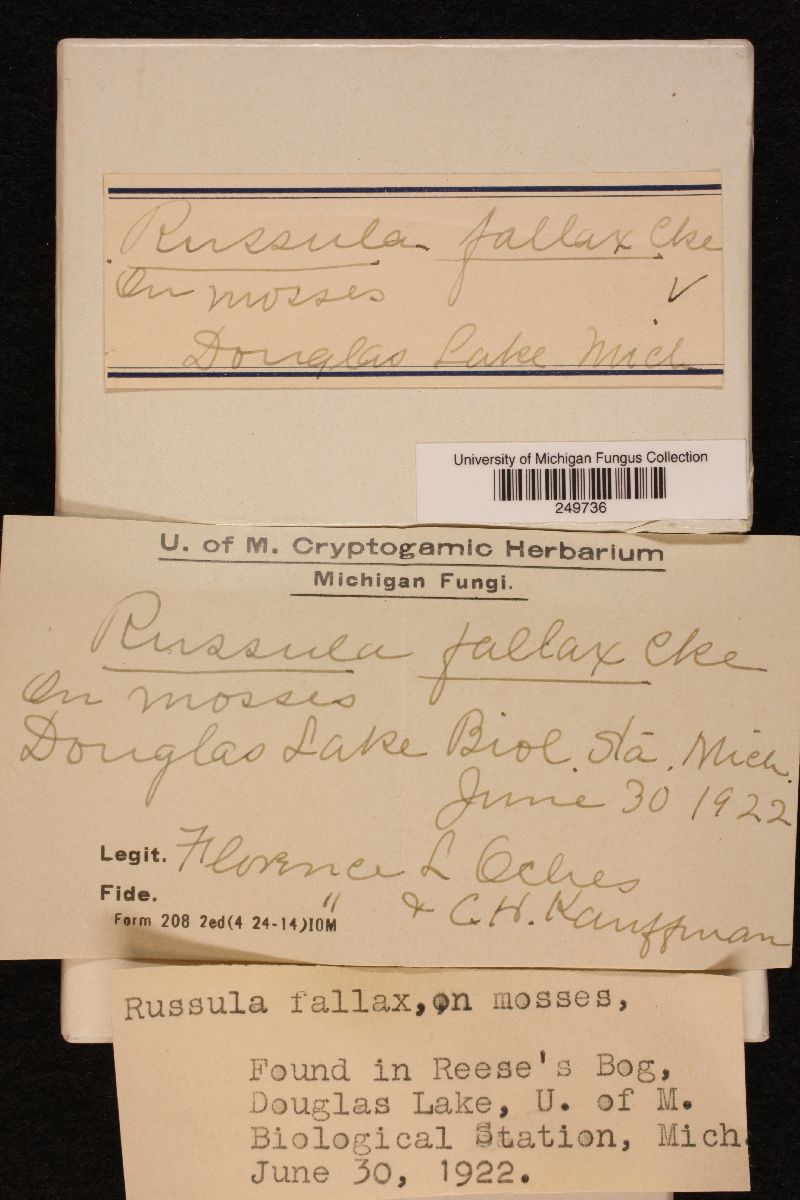 Russula fallax Cke
On mosses ✓
Douglas Lake Mich.
University of Michigan Fungus Collection
249736
U. of M. Cryptogamic Herbarium
Michigan Fungi.
Russula fallax Cke
On mosses
Douglas Lake Biol. Sta. Mich.
June 30 1922
Legit. Florence L Oches
Fide. " & C.H. Kauffman
Form 208 2ed(4 24-14)10M
Russula fallax, on mosses,
Found in Reese's Bog,
Douglas Lake, U. of M.
Biological Station, Mich.
June 30, 1922.